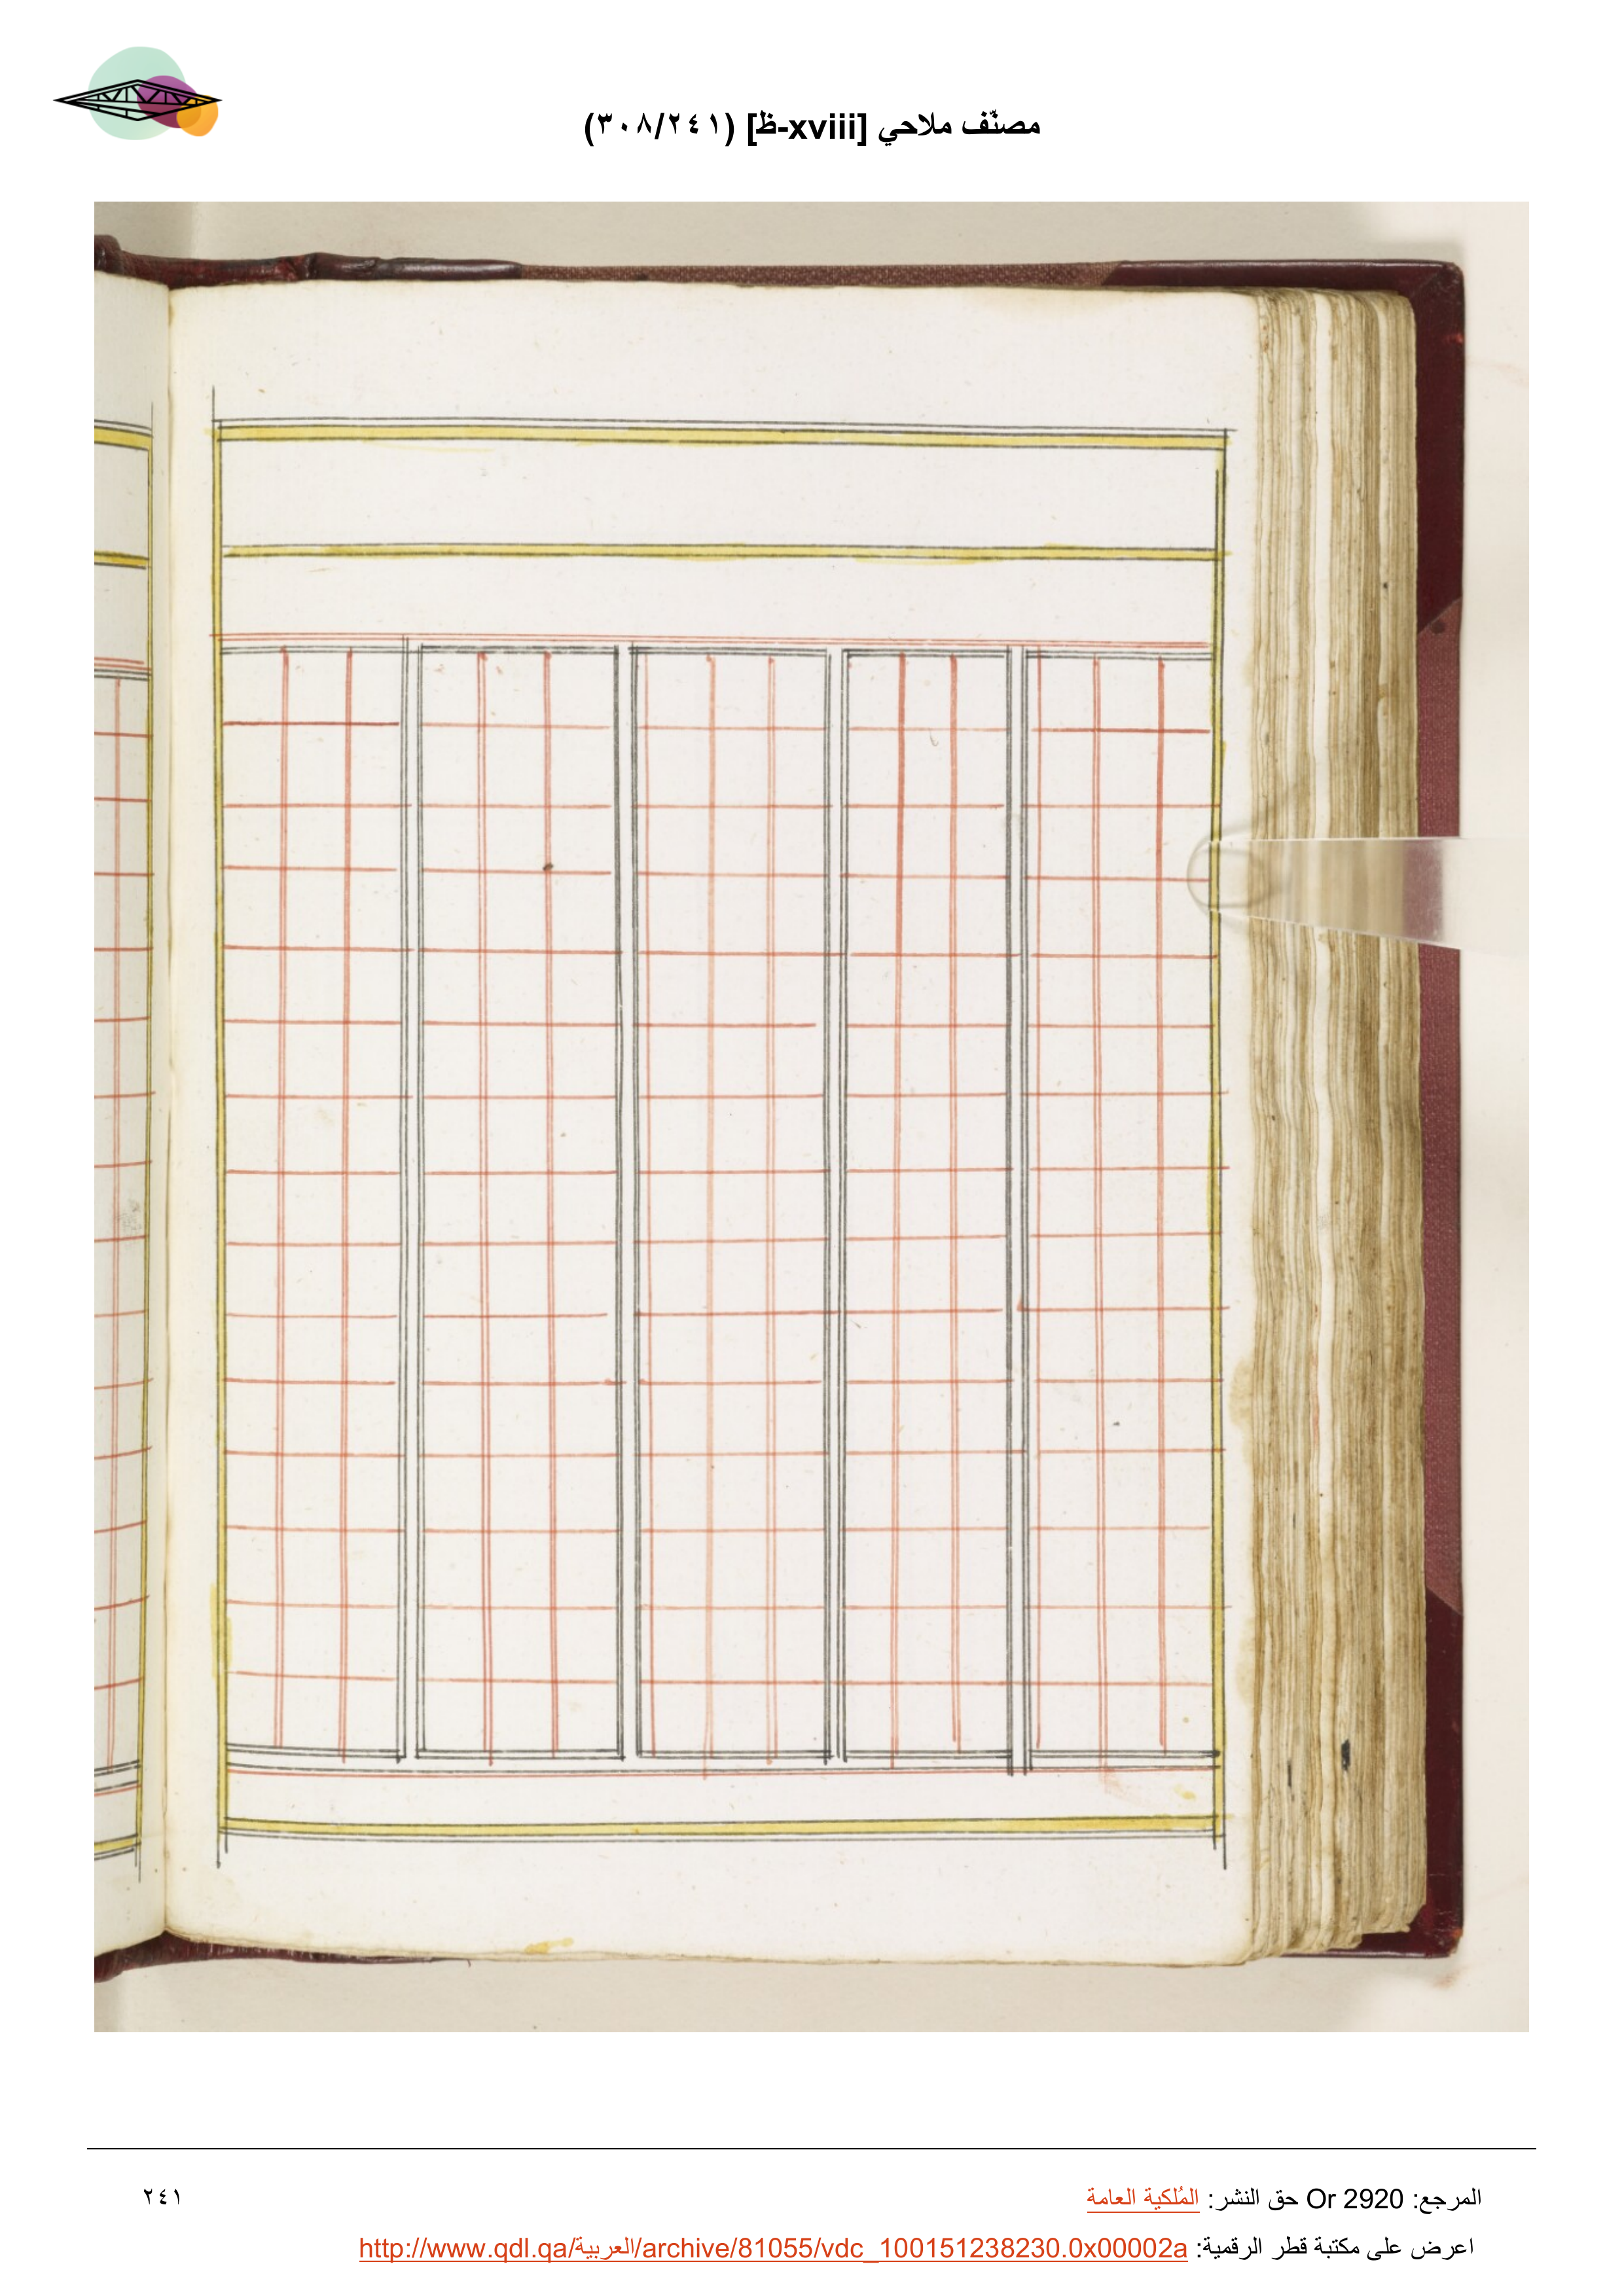 مصنّف ملاحي [xviii-ظ] (٣٠٨/٢٤١)
المرجع: Or 2920 حق النشر: المُلكية العامة
٢٤١
اعرض على مكتبة قطر الرقمية: http://www.qdl.qa/العربية/archive/81055/vdc_100151238230.0x00002a